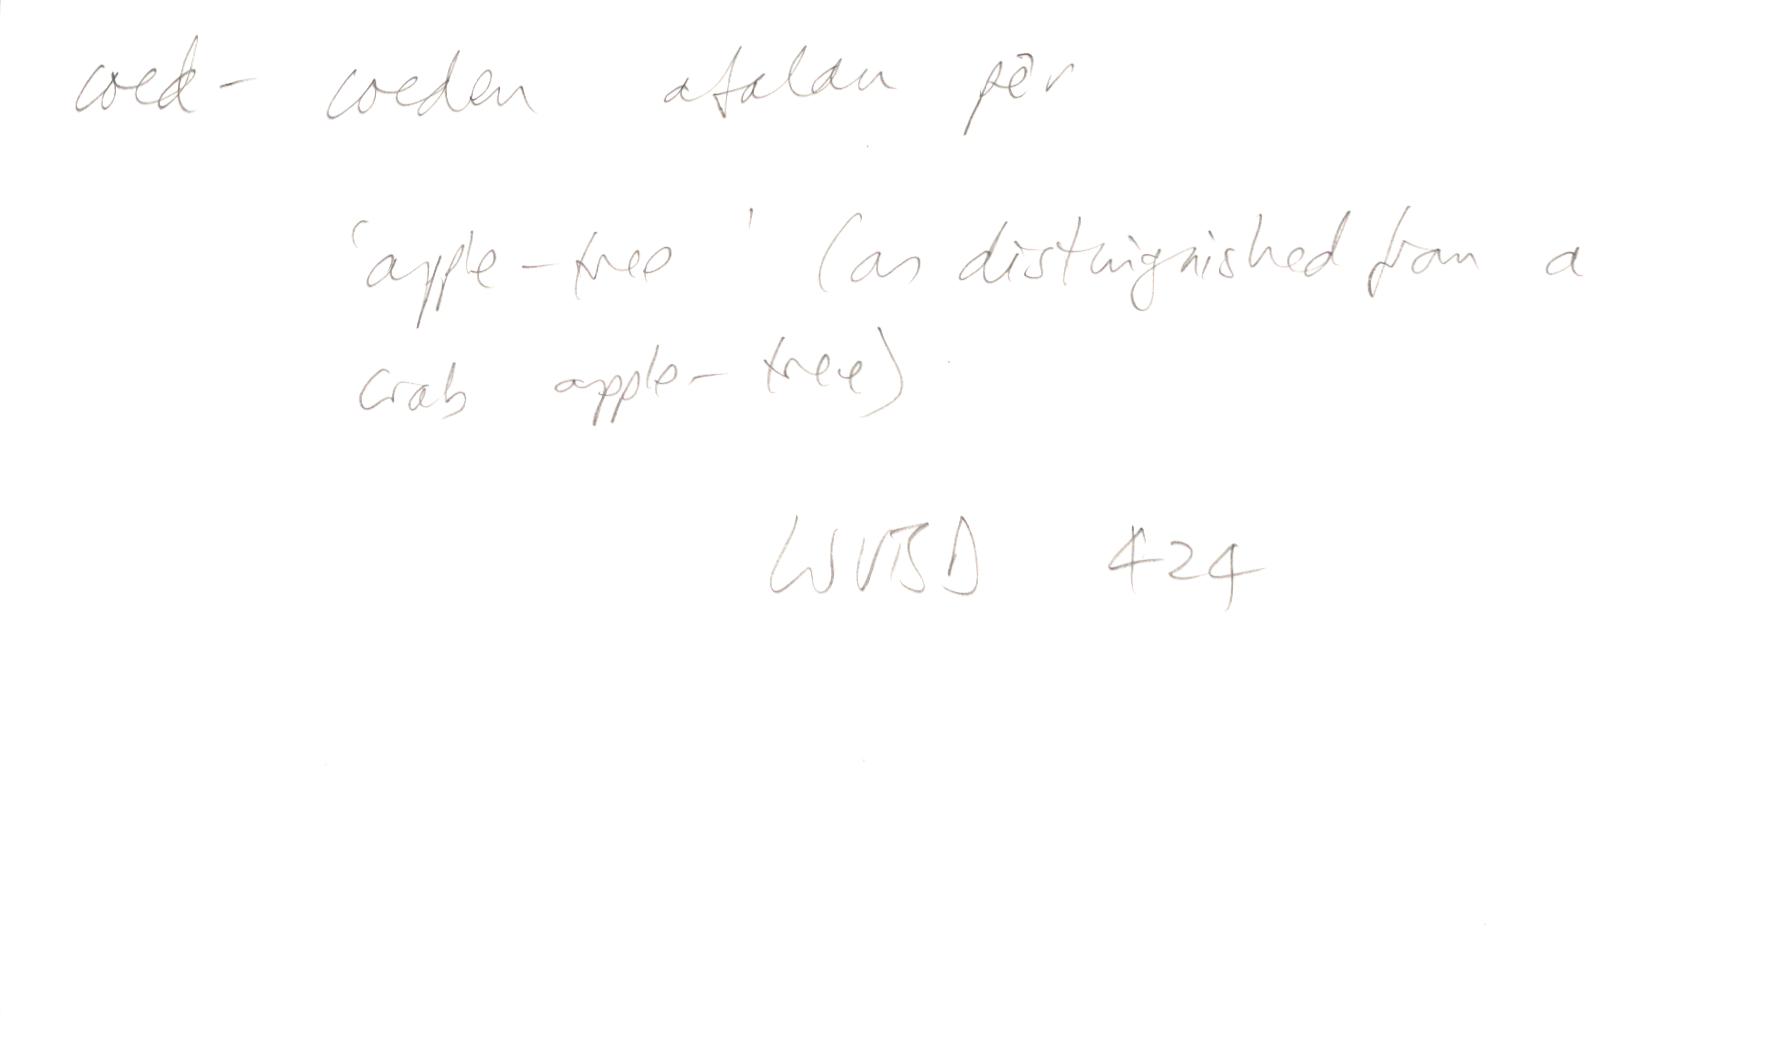 coed- coeden afalau pêr
'apple-tree' (as distinguished from a
crab apple-tree)
WVBD 424